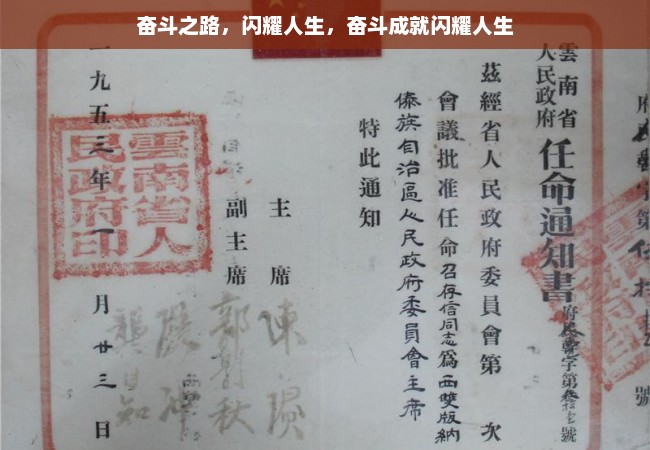 奋斗之路，闪耀人生，奋斗成就闪耀人生
雲南省
人民政府
任命通知書
府民字第號
茲經省人民政府委員會第 次
會議批准任命召存信同志為西雙版納
傣族自治區人民政府委員會主席
特此通知
主席
副主席
郭影秋
龔自知
一九五三年一月廿三日
雲南省人
民政府印
號